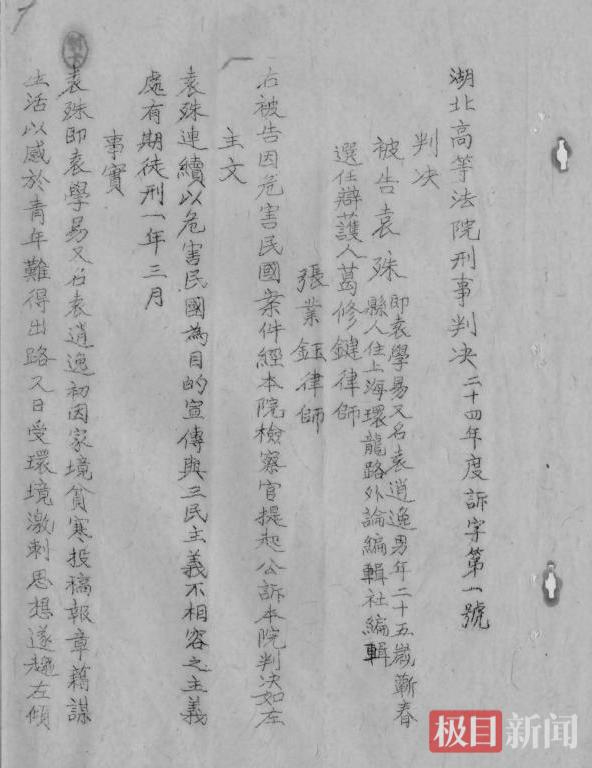 湖北高等法院刑事判决二十四年度訴字第一號
判决
被告袁殊即袁學易又名袁逍逸男年二十五歲蘄春
縣人住上海環龍路外論編輯社編輯
選任辯護人葛修鍵律師
張業鈺律師
右被告因危害民國案件經本院檢察官提起公訴本院判决如左
主文
袁殊連續以危害民國為目的宣傳與三民主義不相容之主義
處有期徒刑一年三月
事實
袁殊即袁學易又名袁逍逸初因家境貧寒投稿報章藉謀
生活以感於青年難得出路又日受環境激刺思想遂趨左傾
极目新闻